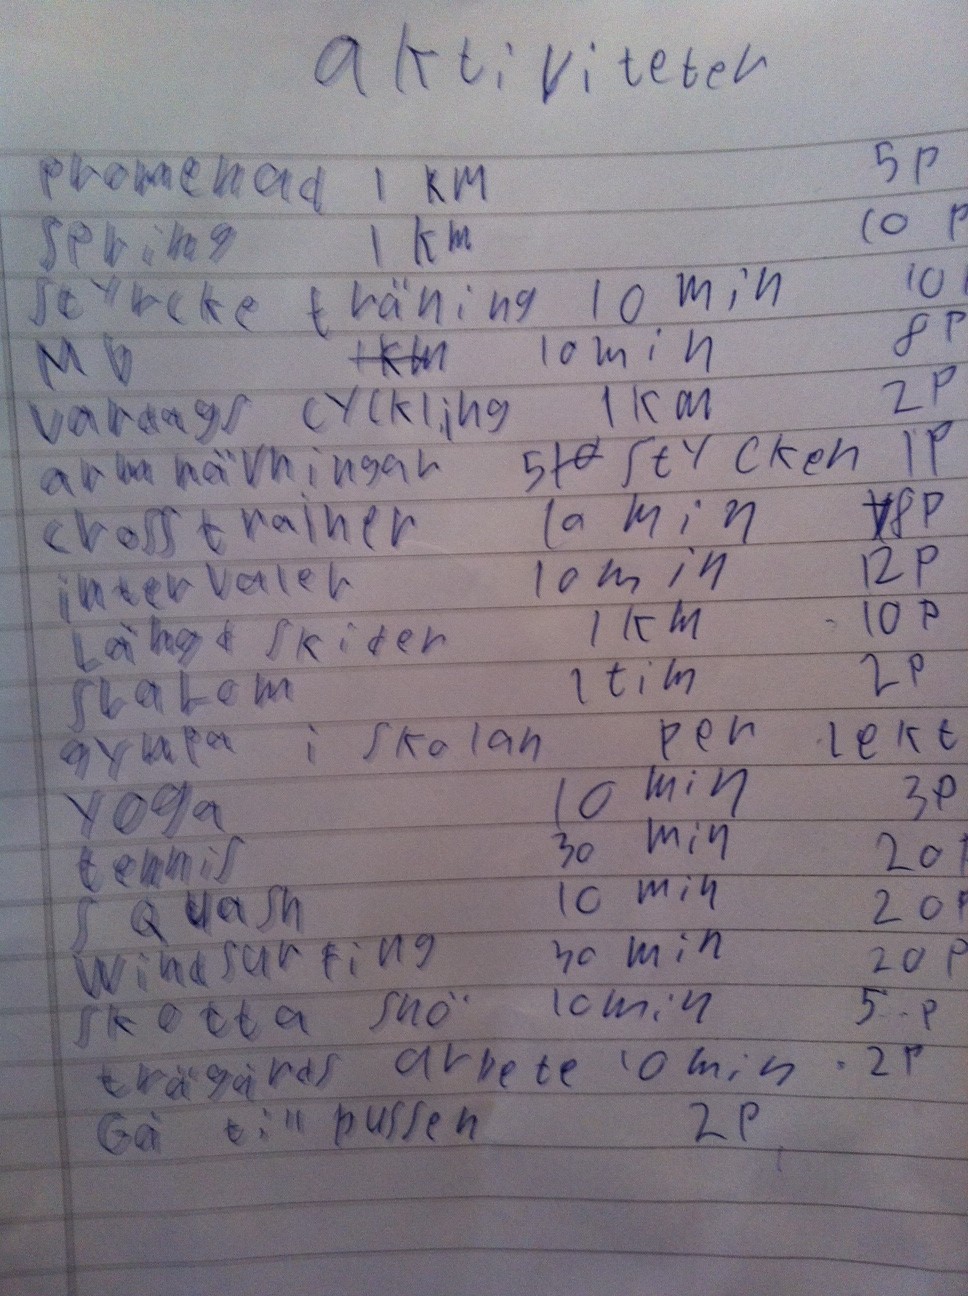 aktiviteter
promenad 1 KM 5P
spring 1 KM 10 P
styrcke träning 10 min 10P
M 10min 8P
vardags cyckling 1KM 2P
armhävningar 5 stycken 1P
crosstrainer 10 min 8P
intervaler 10min 12P
Längd skider 1KM 10P
slalom 1tim 2P
gympa i skolan per lekt
yoga 10 min 3P
tennis 30 min 20P
SQuash 10 min 20P
Windsurfing 30 min 20P
skotta snö 10min 5 P
trägårds arbete 10min 2P
Gå till bussen 2P